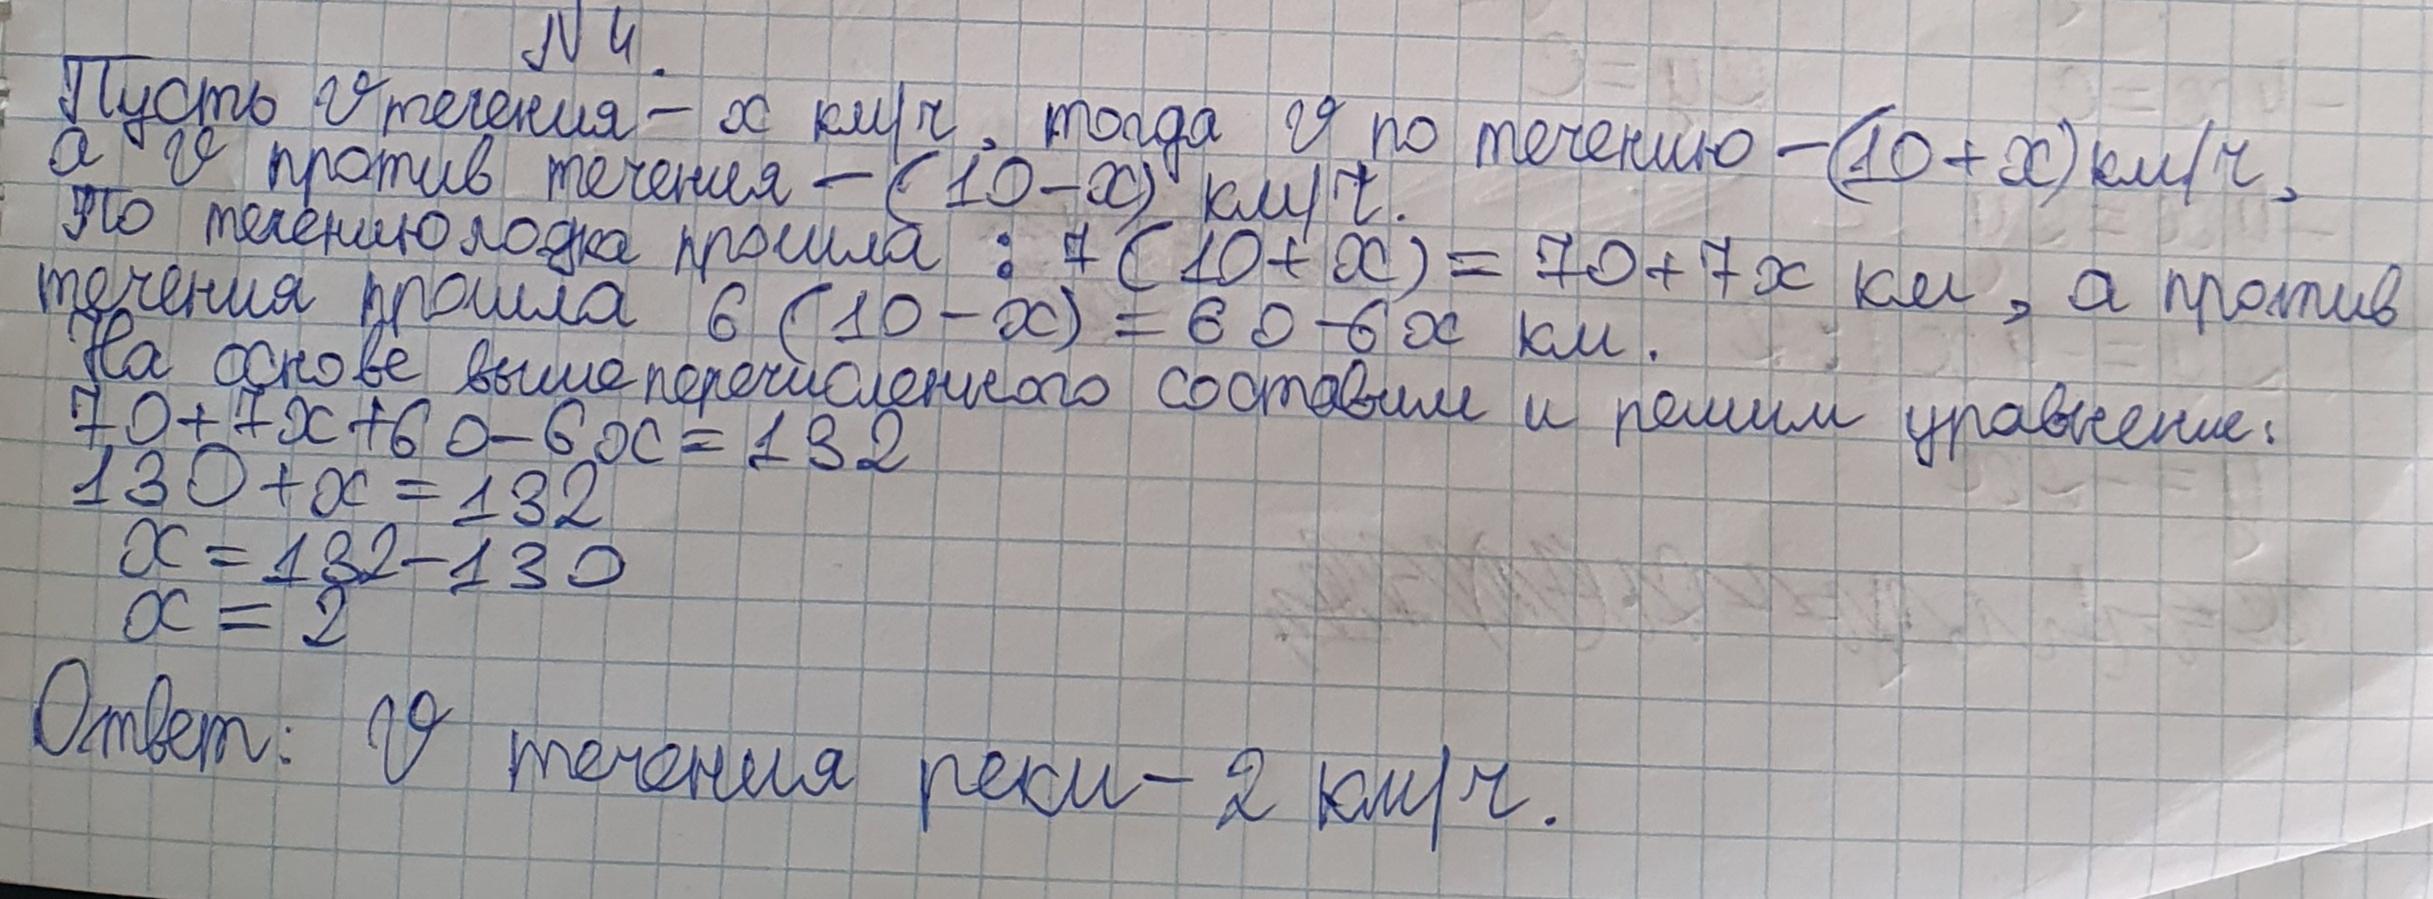 N 4.
Пусть V течения – x км/ч, тогда V по течению – (10+x) км/ч,
а V против течения – (10-x) км/ч.
По течению лодка прошла : 7(10+x)=70+7x км, а против
течения прошла 6(10-x)=60-6x км.
На основе вышеперечисленного составим и решим уравнение:
70+7x+60-6x=132
130+x=132
x=132-130
x=2
Ответ: V течения реки – 2 км/ч.